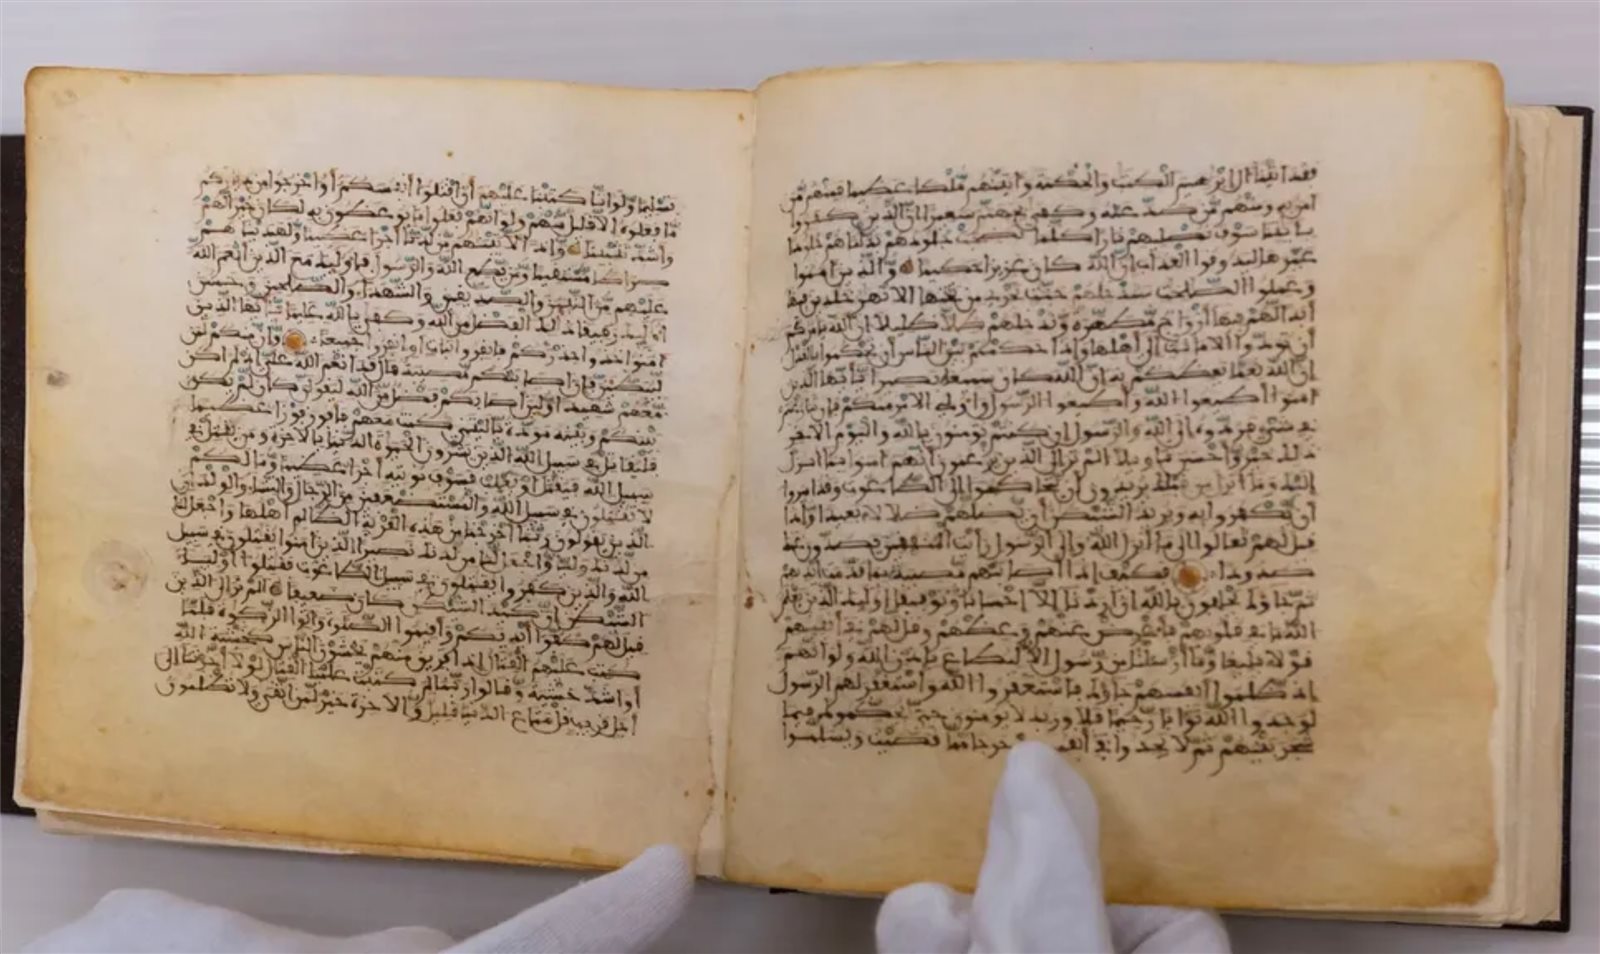 فقد اتينا ال ابرهيم الكتب والحكمة واتينهم ملكا عظيما فمنهم من
امن به ومنهم من صد عنه وكفى بجهنم سعيرا ان الذين كفروا
بايتنا سوف نصليهم نارا كلما نضجت جلودهم بدلنهم جلودا
غيرها ليذوقوا العذاب ان الله كان عزيزا حكيما والذين امنوا
وعملوا الصلحت سندخلهم جنت تجري من تحتها الانهر خلدين فيها
ابدا لهم فيها ازوج مطهرة وندخلهم ظلا ظليلا ان الله يامركم
ان تودوا الامنت الى اهلها واذا حكمتم بين الناس ان تحكموا بالعدل
ان الله نعما يعظكم به ان الله كان سميعا بصيرا يايها الذين
امنوا اطيعوا الله واطيعوا الرسول واولي الامر منكم فان تنزعتم
في شيء فردوه الى الله والرسول ان كنتم تومنون بالله واليوم الاخر
ذلك خير واحسن تاويلا الم تر الى الذين يزعمون انهم امنوا بما انزل
اليك وما انزل من قبلك يريدون ان يتحاكموا الى الطاغوت وقد امروا
ان يكفروا به ويريد الشيطن ان يضلهم ضللا بعيدا واذا
قيل لهم تعالوا الى ما انزل الله والى الرسول رايت المنفقين يصدون عنك
صدودا فكيف اذا اصابتهم مصيبة بما قدمت ايديهم
ثم جاوك يحلفون بالله ان اردنا الا احسانا وتوفيقا اوليك الذين يعلم
الله ما في قلوبهم فاعرض عنهم وعظهم وقل لهم في انفسهم
قولا بليغا وما ارسلنا من رسول الا ليطاع باذن الله ولو انهم
اذ ظلموا انفسهم جاوك فاستغفروا الله واستغفر لهم الرسول
لوجدوا الله توابا رحيما فلا وربك لا يومنون حتى يحكموك فيما
شجر بينهم ثم لا يجدوا في حرجا مما قضيت ويسلموا
تسليما ولو انا كتبنا عليهم ان اقتلوا انفسكم او اخرجوا من ديركم
ما فعلوه الا قليل منهم ولو انهم فعلوا ما يوعظون به لكان خيرا لهم
واشد تثبيتا واذا لاتينهم من لدنا اجرا عظيما ولهدينهم
صراطا مستقيما ومن يطع الله والرسول فاوليك مع الذين انعم الله
عليهم من النبيين والصديقين والشهداء والصلحين وحسن
اوليك رفيقا ذلك الفضل من الله وكفى بالله عليما يايها الذين
امنوا خذوا حذركم فانفروا ثبات او انفروا جميعا وان منكم لمن
ليبطين فان اصابتكم مصيبة قال قد انعم الله علي اذ لم اكن
معهم شهيدا ولين اصابكم فضل من الله ليقولن كان لم يكن
بينكم وبينه مودة يليتني كنت معهم فافوز فوزا عظيما
فليقاتل في سبيل الله الذين يشرون الحيوة الدنيا بالاخرة ومن يقتل في
سبيل الله فيقتل او يغلب فسوف نوتيه اجرا عظيما وما لكم
لا تقتلون في سبيل الله والمستضعفين من الرجال والنساء والولدن
الذين يقولون ربنا اخرجنا من هذه القرية الظالم اهلها واجعل لنا
من لدنك وليا واجعل لنا من لدنك نصيرا الذين امنوا يقتلون في سبيل
الله والذين كفروا يقتلون في سبيل الطاغوت فقتلوا اولياء
الشيطن ان كيد الشيطن كان ضعيفا الم تر الى الذين
قيل لهم كفوا ايديكم واقيموا الصلوة واتوا الزكوة فلما
كتب عليهم القتال اذا فريق منهم يخشون الناس كخشية الله
او اشد خشية وقالوا ربنا لم كتبت علينا القتال لولا اخرتنا الى
اجل قريب قل متاع الدنيا قليل والاخرة خير لمن اتقى ولا تظلمون